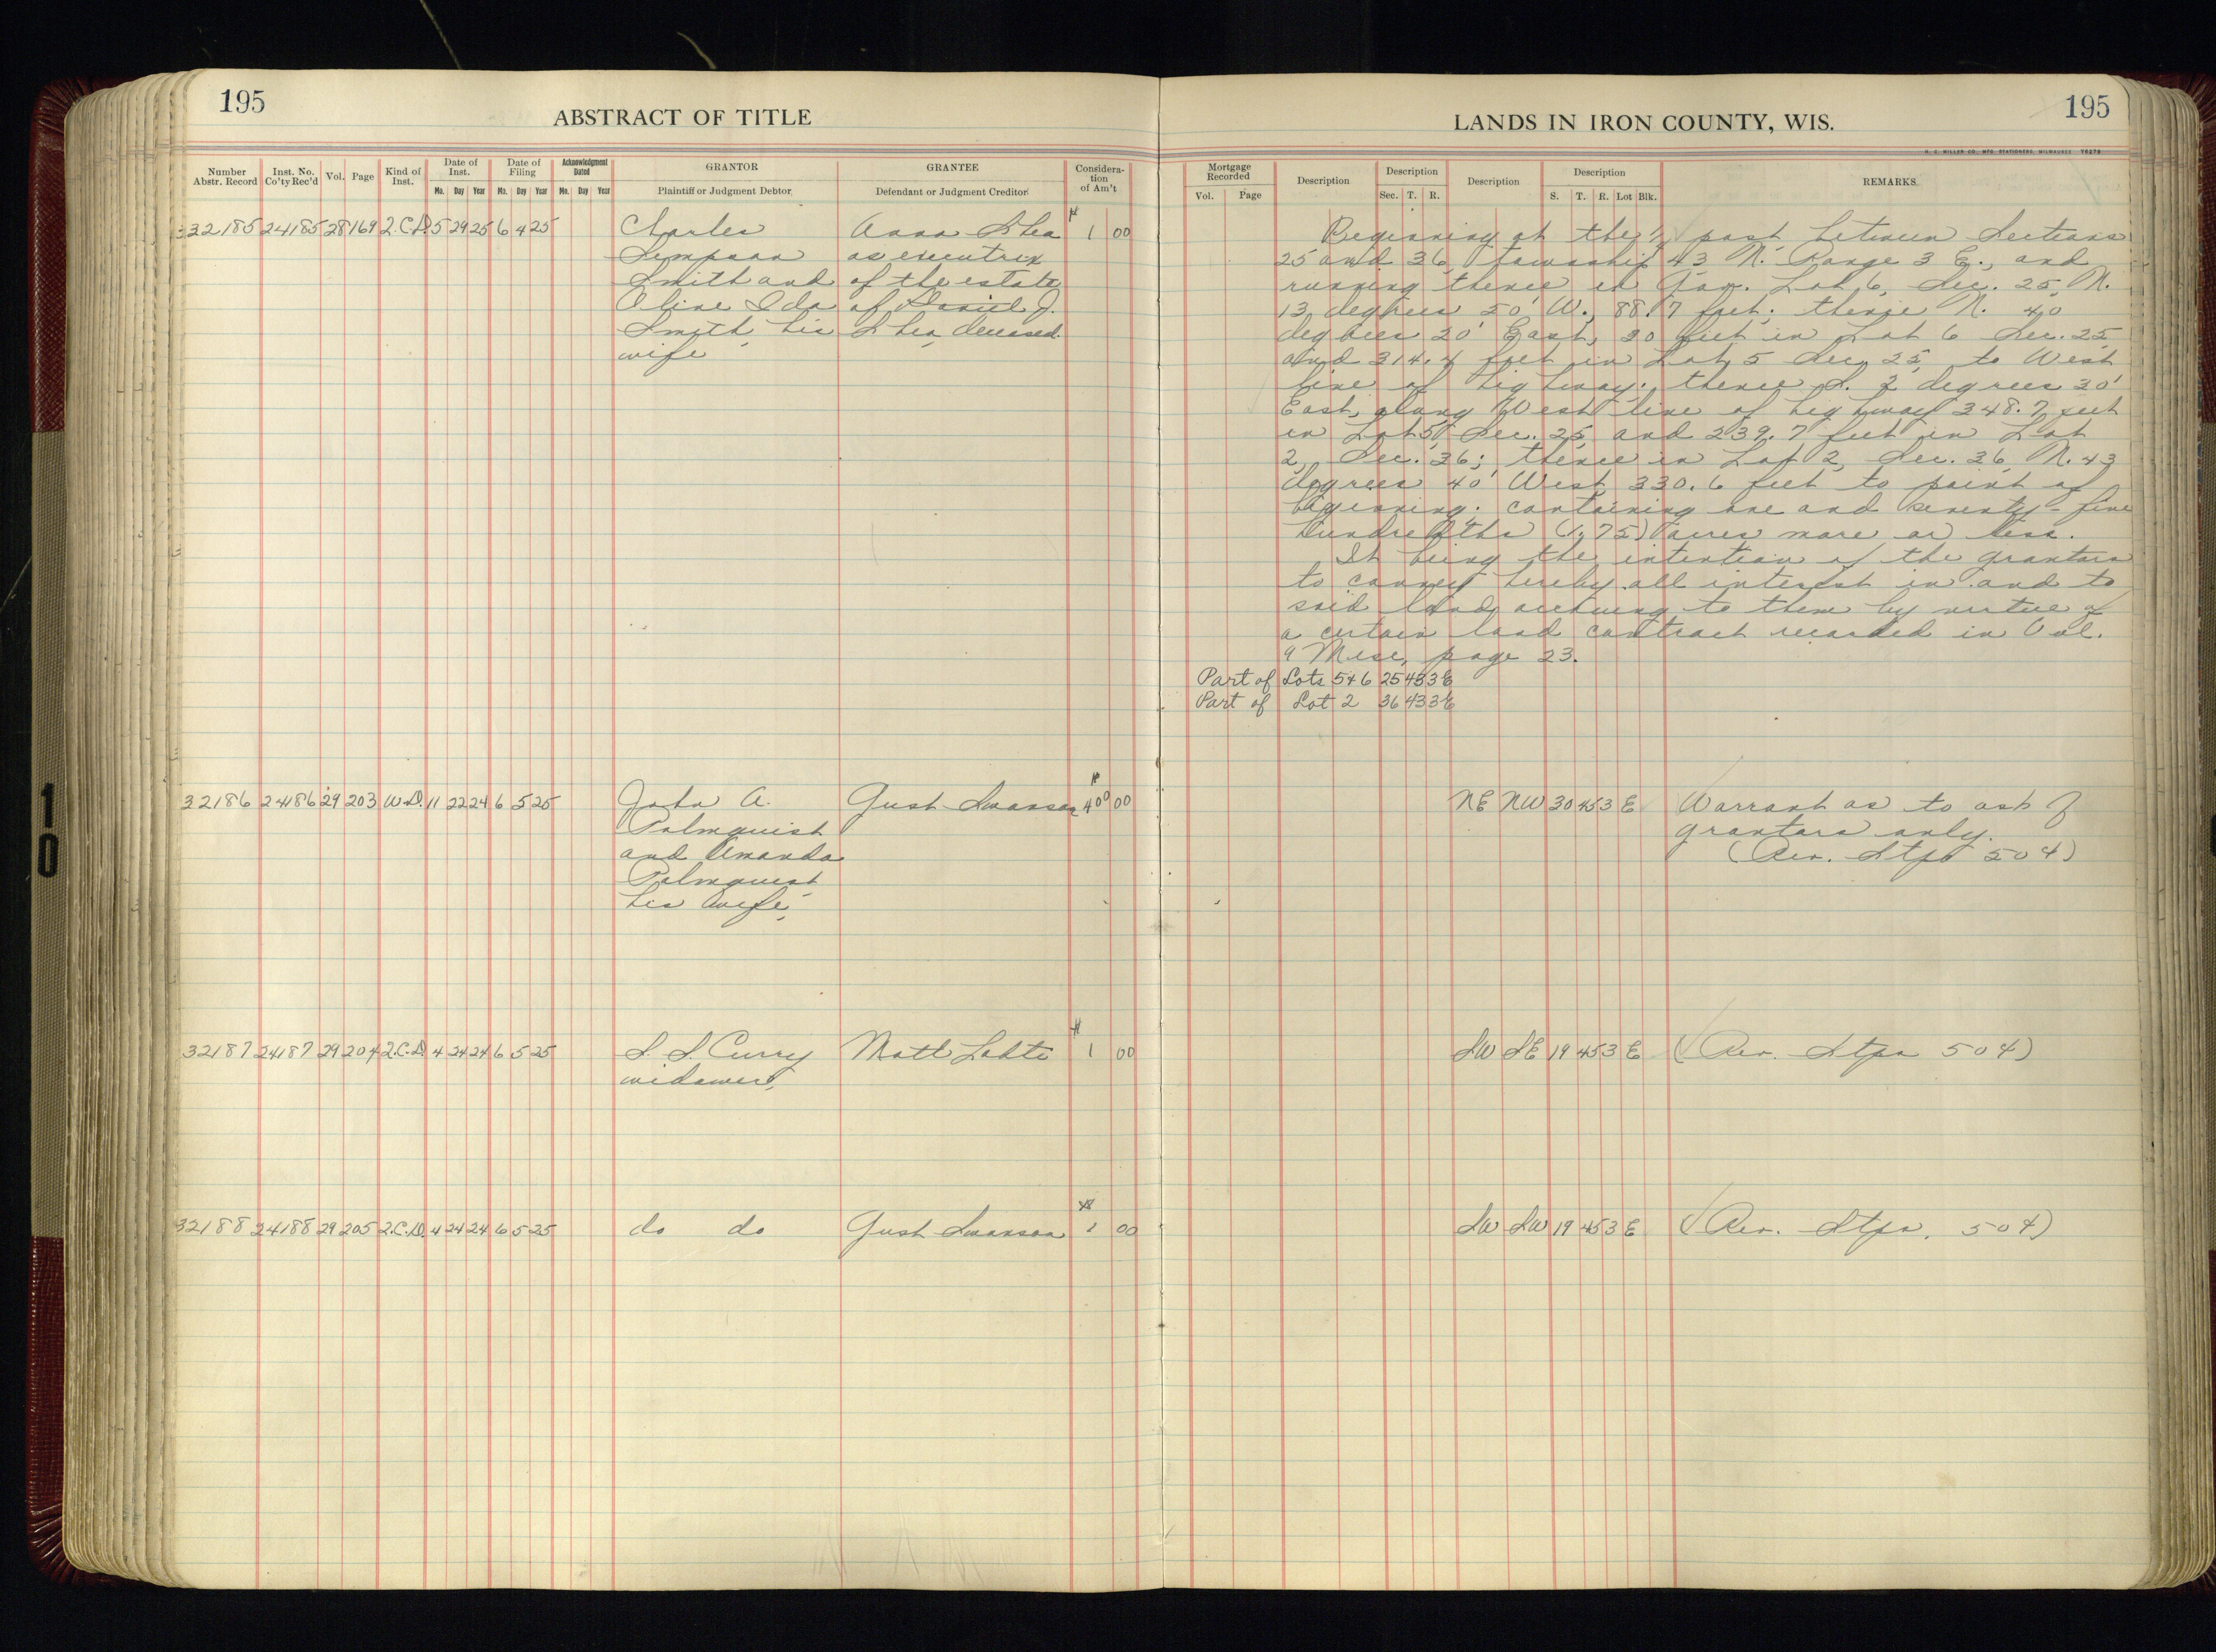 195
ABSTRACT OF TITLE
LANDS IN IRON COUNTY, WIS.
195
H. C. MILLER CO., MFG. STATIONERS, MILWAUKEE
Number Abstr. Record
Inst. No. Co'ty Rec'd
Vol.
Page
Kind of Inst.
Date of Inst.
Mo. Day Year
Date of Filing
Mo. Day Year
Acknowledgment Dated
Mo. Day Year
GRANTOR
Plaintiff or Judgment Debtor
GRANTEE
Defendant or Judgment Creditor
Considera-
tion
of Am't
Mortgage Recorded
Vol. Page
Description
Description
Sec. T. R.
Description
Description
S. T. R. Lot Blk.
REMARKS
32185 24185 28 169 Q.C.D. 5 29 25 6 4 25
Charles
Simpson
Smith and
Oline Ida
Smith, his
wife
Anna Shea
as executrix
of the estate
of Daniel J.
Shea, deceased.
1 00
Beginning at the 1/4 post between Sections
25 and 36, township 43 N. Range 3 E., and
running thence in Gov. Lot 6, Sec. 25, N.
13 degrees 50' W., 88.7 feet; thence N. 40
degrees 20' East, 30 feet in Lot 6 Sec. 25,
and 314.4 feet in Lot 5 Sec 25, to West
line of highway; thence S. 2 degrees 30'
East, along West line of highway 348.7 feet
in Lot 5, Sec. 25, and 239.7 feet in Lot
2, Sec. 36; thence in Lot 2, Sec. 36, N. 43
degrees 40' West, 330.6 feet to point of
beginning; containing one and seventy-five
hundredths (1.75) acres more or less.
It being the intention of the grantors
to convey hereby all interest in and to
said land accruing to them by virtue of
a certain land contract recorded in Vol.
9 Misc, page 23.
Part of Lots 5 & 6 25 43 3E
Part of Lot 2 36 43 3E
32186 24186 29 203 W.D. 11 22 24 6 5 25
John A.
Palmquist
and Amanda
Palmquist
his wife,
Gust Swanson
400 00
NE NW 30 45 3 E
Warrant as to acts of
grantors only.
(Rev. Stps 50¢)
32187 24187 29 204 Q.C.D. 4 24 24 6 5 25
S. S. Curry
widower,
Matt Lahti
1 00
SW SE 19 45 3 E
(Rev. Stps 50¢)
32188 24188 29 205 Q.C.D. 4 24 24 6 5 25
do do
Gust Swanson
1 00
SW SW 19 45 3 E
(Rev. Stps. 50¢)
10